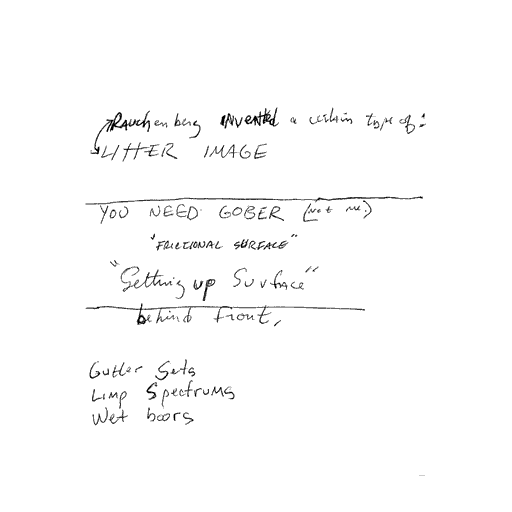 Rauchenberg INVENTED a certain type of:
LITTER IMAGE
YOU NEED GOBER (not me.)
"FRICTIONAL SURFACE"
"Setting up Surface"
behind front,
Gutter Sets
Limp Spectrums
Wet boors